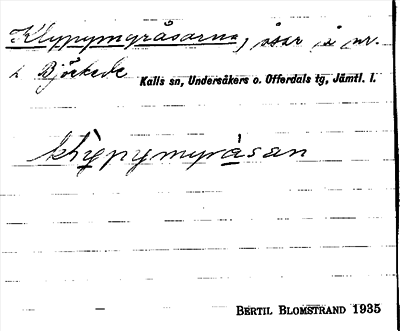 Klypymyråsarna, åsar i nr.
i Björkede
Kalls sn, Undersåkers o. Offerdals tg, Jämtl. l.
klỳpymyråsan
BERTIL BLOMSTRAND 1935